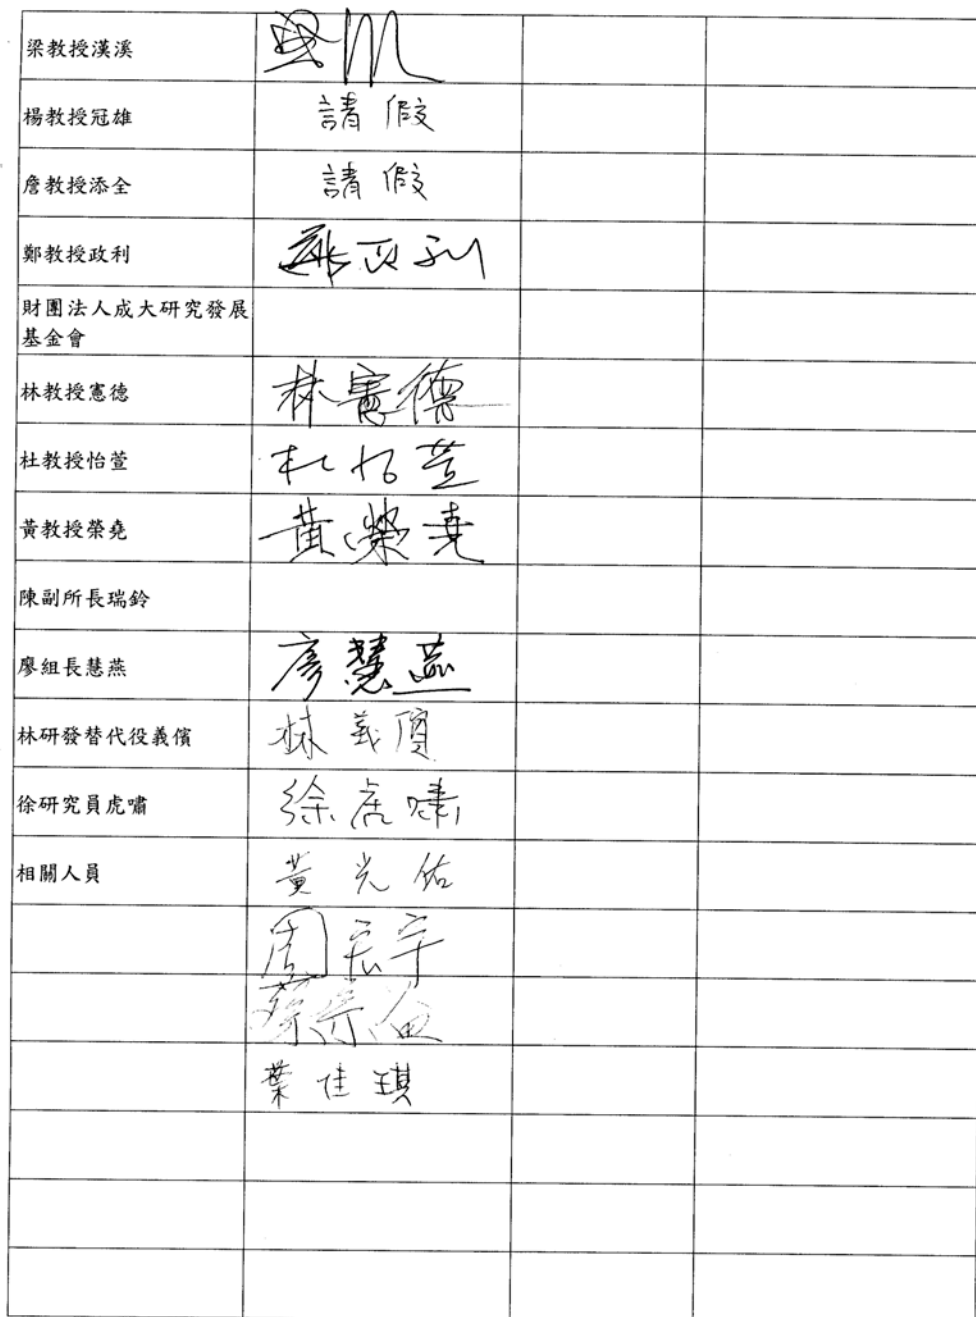 梁教授漢溪
楊教授冠雄 請假
詹教授添全 請假
鄭教授政利 鄭政利
財團法人成大研究發展
基金會
林教授憲德 林憲德
杜教授怡萱 杜怡萱
黃教授榮堯 黃榮堯
陳副所長瑞鈴
廖組長慧燕 廖慧燕
林研發替代役義儐 林義儐
徐研究員虎嘯 徐虎嘯
相關人員 黃光佑
周宏宇
蔡宗
葉佳琪